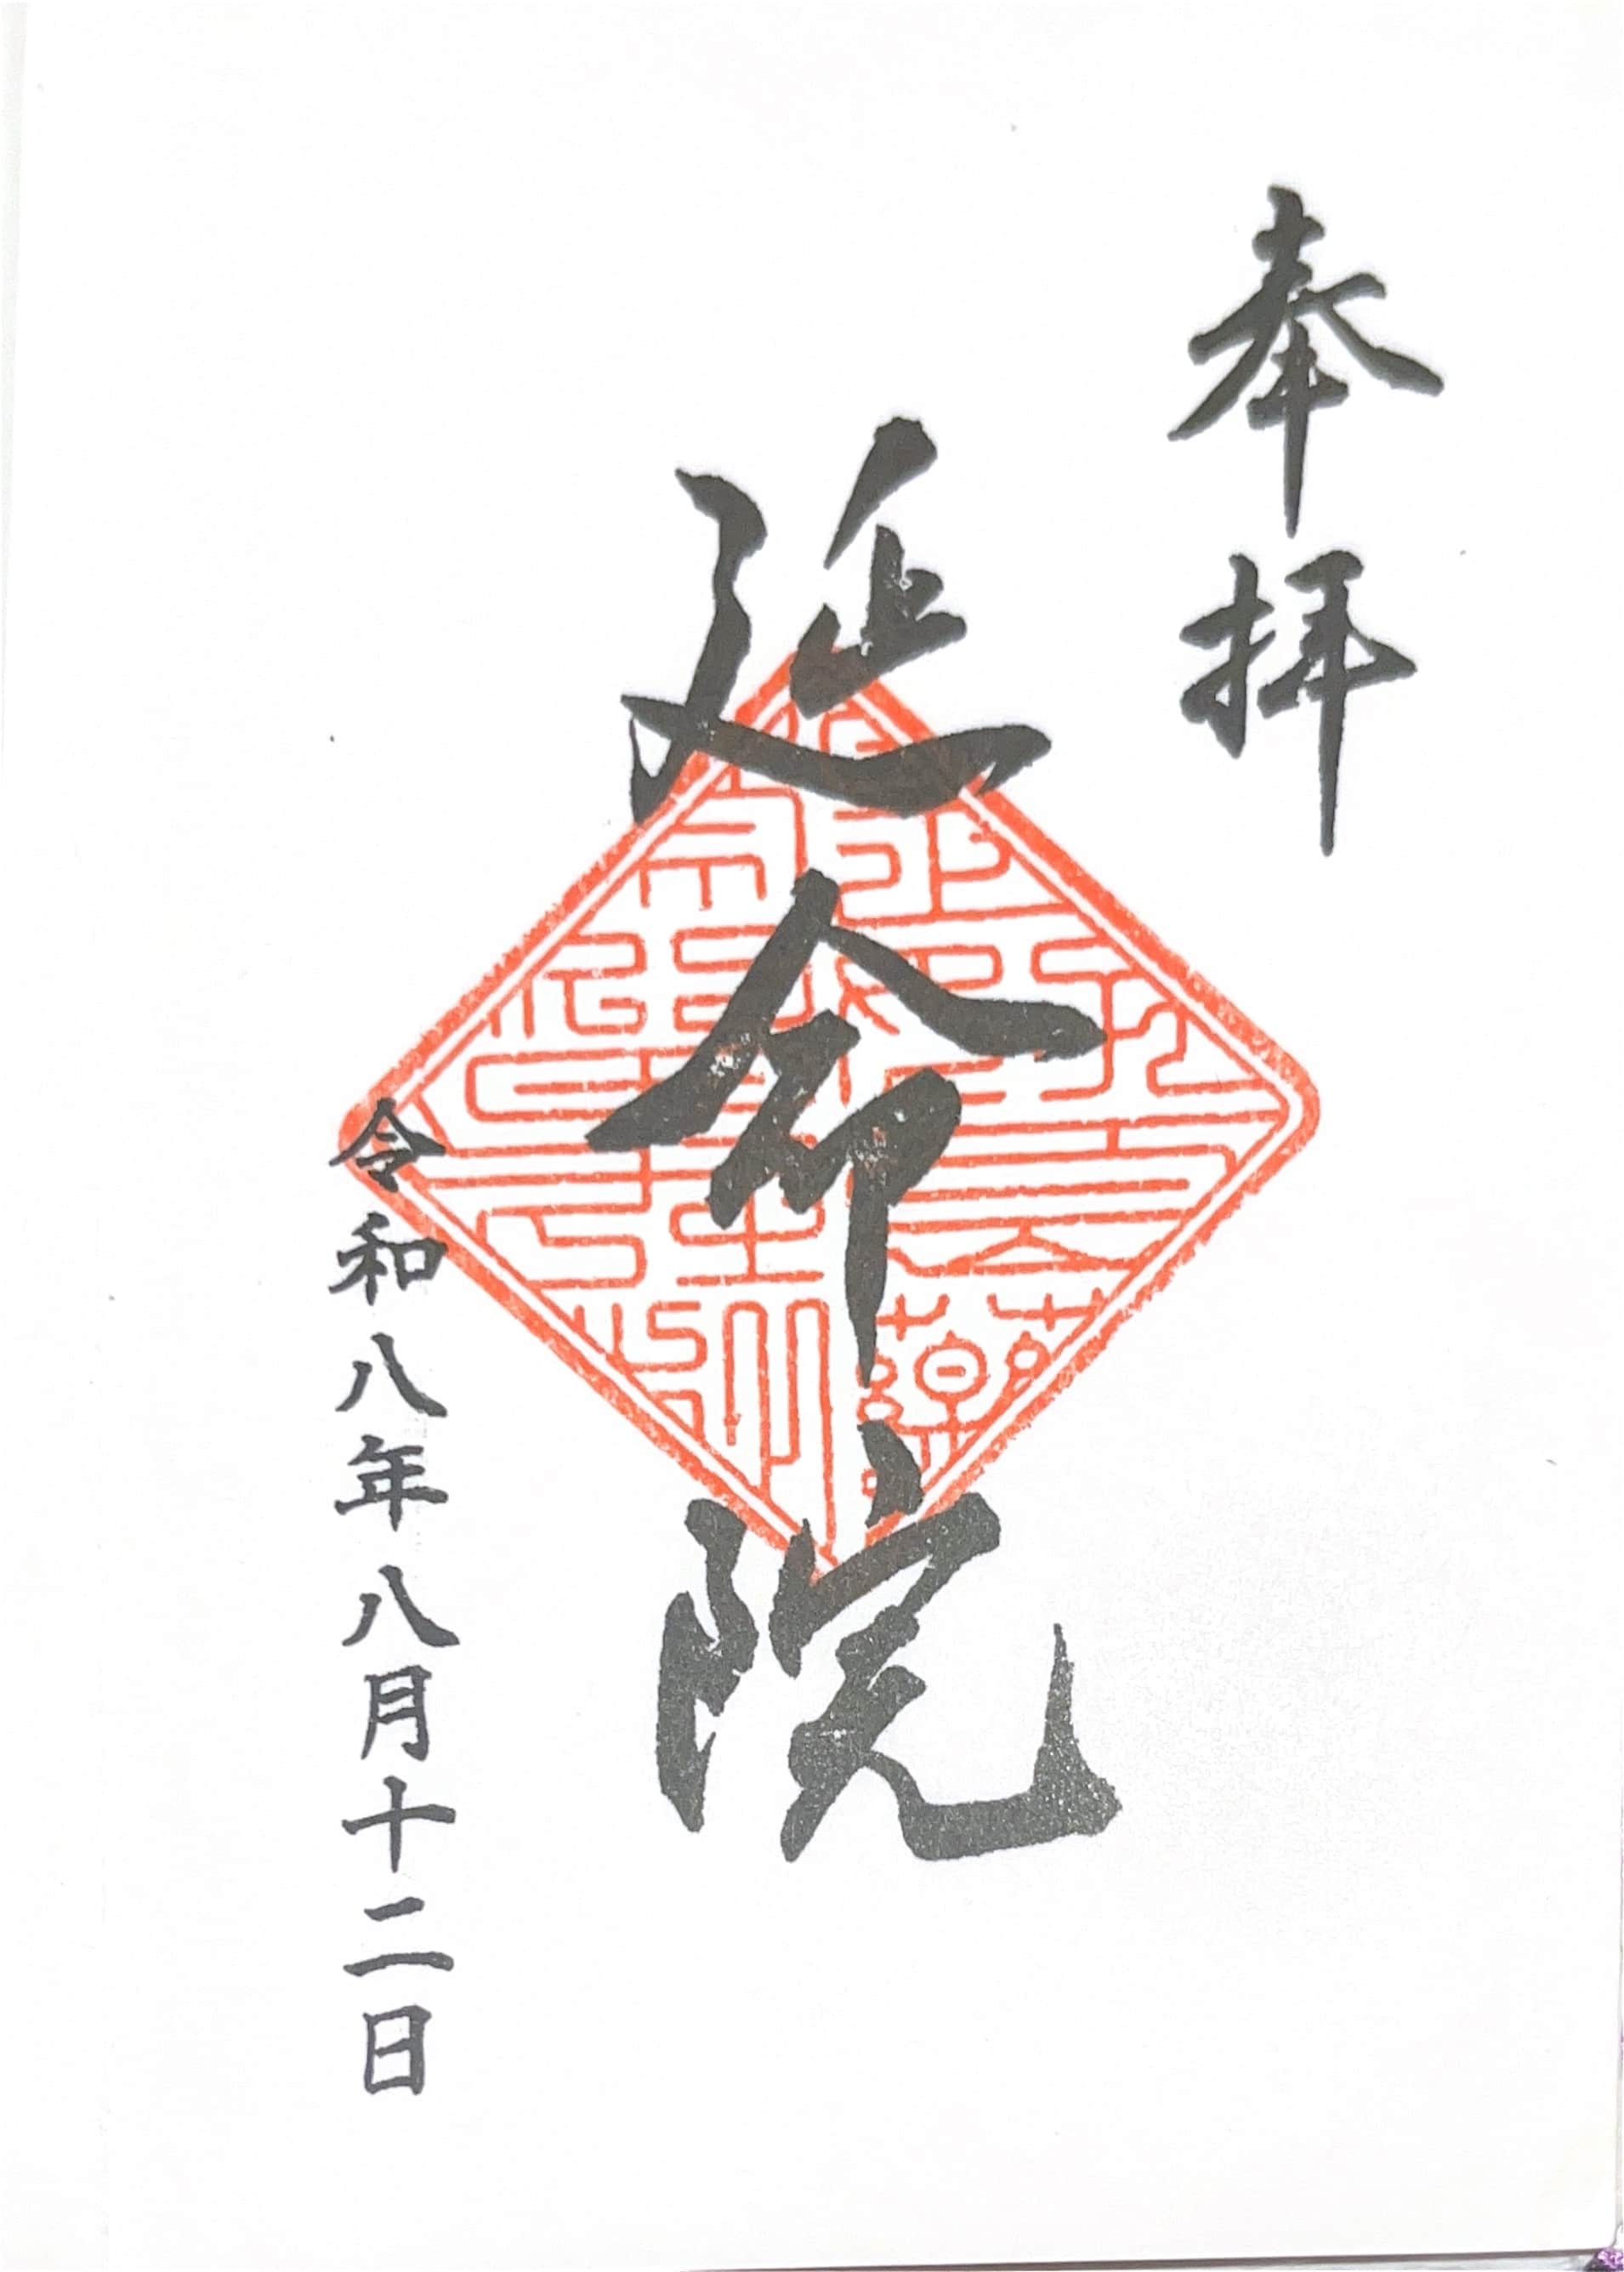 奉拝
延命院
令和八年八月十二日